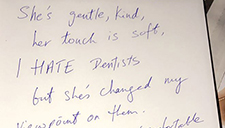 She's gentle, kind,
her touch is soft,
I HATE Dentists
but she's changed my
viewpoint on them.